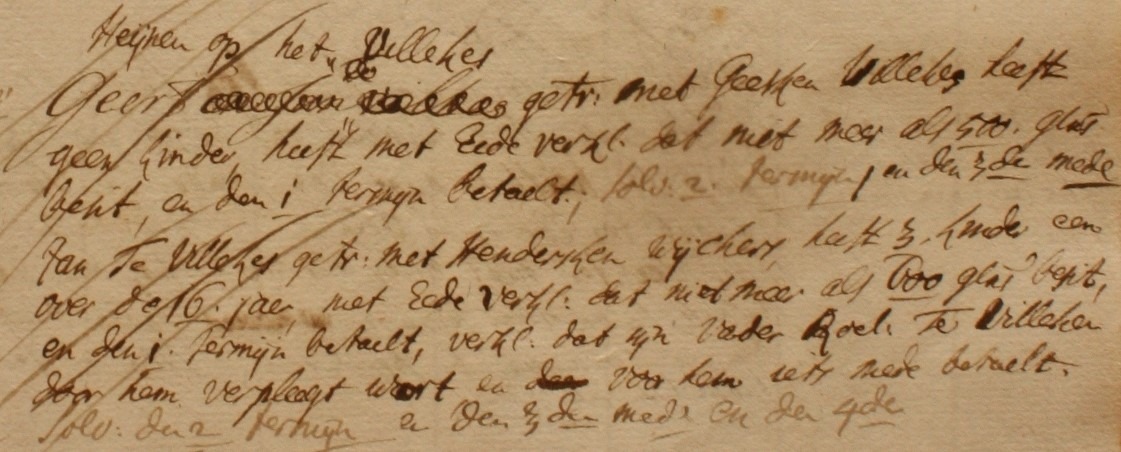 Heijnen op het Villekes
Geert getr: met Geesken Villekes heeft
geen kinder, heeft met Eede verkl. dat niet meer als 500. glns
besit, en den 1 termyn betaelt., solv. 2. termijn, en den 3de mede
Jan Te Villekes getr: met Hendersken Wijchers, heeft 3. kinder een
over de 16. jaer, met Eede verkl: dat niet meer als 600 glns besit,
en den 1. Termijn betaelt, verkl. dat syn vader Roel: Te Villeken
door hem verpleegt wort en voor hem iets mede betaelt.
solv: den 2 termijn en den 3den mede en den 4de